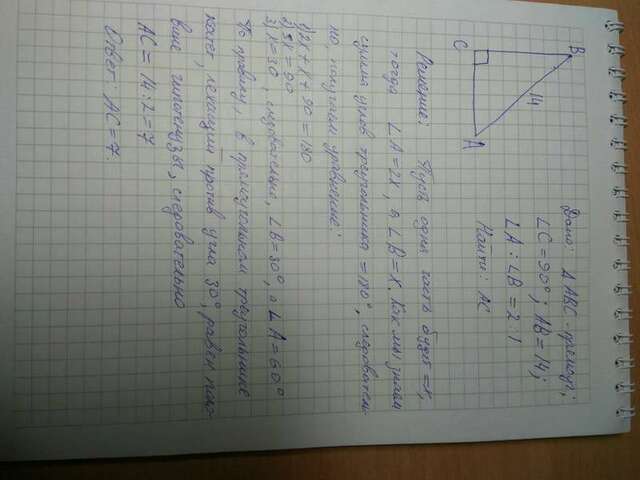 B
C
14
A
Дано: Δ ABC - прямоуг.;
∠C = 90°; AB = 14;
∠A : ∠B = 2 : 1
Найти: AC
Решение: Пусть одна часть будет = x,
тогда ∠A = 2x, а ∠B = x. Как мы знаем
сумма углов треугольника = 180°, следователь-
но, получим уравнение:
1) 2x + x + 90 = 180
2) 3x = 90
3) x = 30, следовательно, ∠B = 30°, а ∠A = 60°
По правилу, в прямоугольном треугольнике
катет, лежащий против угла 30°, равен поло-
вине гипотенузы, следовательно
AC = 14 : 2 = 7
Ответ: AC = 7.